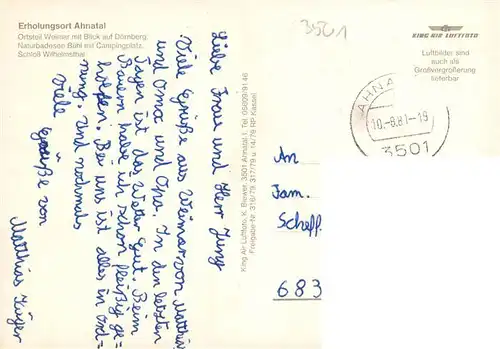 Erholungsort Ahnatal
Ortsteil Weimar mit Blick auf Dörnberg,
Naturbadesee Bühl mit Campingplatz,
Schloß Wilhelmsthal
3501
KING AIR LUFTFOTO
Luftbilder sind
auch als
Großvergrößerung
lieferbar
AHNA
10.-8.81-19
3501
Liebe Frau und Herr Jung
Viele Grüße aus Weimar von Matthias
und Oma und Opa. In den letzten
Tagen ist das Wetter gut. Beim
Bauern habe ich schon fleißig ge=
holfen. Bei uns ist alles in Ord=
nung. Und nochmals
viele Grüße von
Matthias
King Air Luftfoto, K. Brewer, 3501 Ahnatal 1, Tel. 05609/91 46
Freigabe-Nr. 316/79, 317/79 u. 14/79 RP Kassel
An
Fam.
Scheff
683